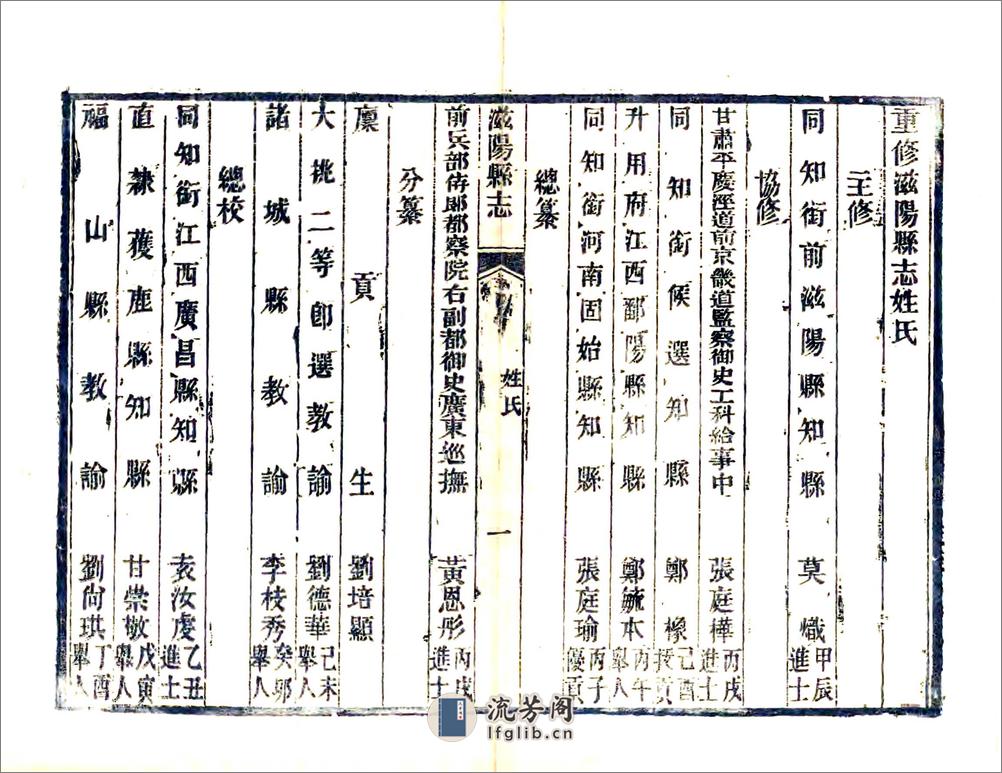 重修滋陽縣志姓氏
主修
同知銜前滋陽縣知縣 莫熾 甲辰進士
協修
甘肅平慶涇道前京畿道監察御史工科給事中 張庭樺 丙戌進士
同知銜候選知縣 鄭橡 己酉拔貢
升用府江西鄱陽縣知縣 鄭毓本 丙午舉人
同知銜河南固始縣知縣 張庭瑜 丙子優貢
總纂
滋陽縣志 姓氏 一
前兵部侍郎都察院右副都御史廣東巡撫 黃恩彤 丙戌進士
分纂
廩貢生 劉培顯
大挑二等卽選教諭 劉德華 己未舉人
諸城縣教諭 李枝秀 癸卯舉人
總校
同知銜江西廣昌縣知縣 袁汝虔 乙丑進士
直隸獲鹿縣知縣 甘崇敬 戊寅舉人
福山縣教諭 劉尙琪 丁酉舉人
流芳阁
lfglib.cn